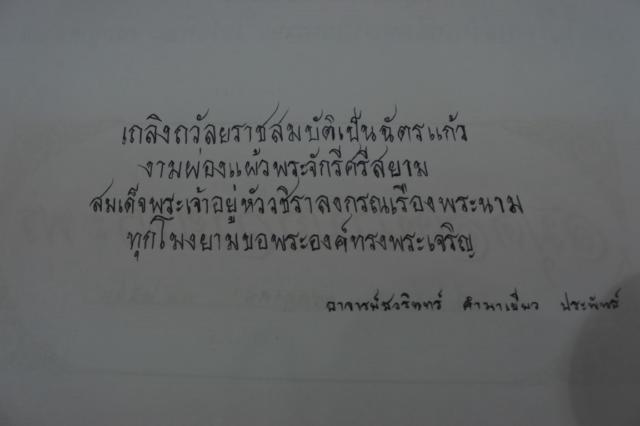 เถลิงถวัลยราชสมบัติเป็นฉัตรแก้ว
งามผ่องแผ้วพระจักรีศรีสยาม
สมเด็จพระเจ้าอยู่หัววชิราลงกรณเรืองพระนาม
ทุกโมงยามขอพระองค์ทรงพระเจริญ
อาจารย์สุรินทร์ ประพันธ์